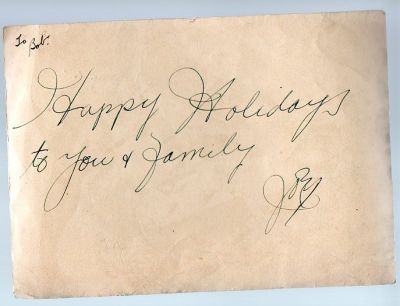 To Bob.
Happy Holidays
to you & Family